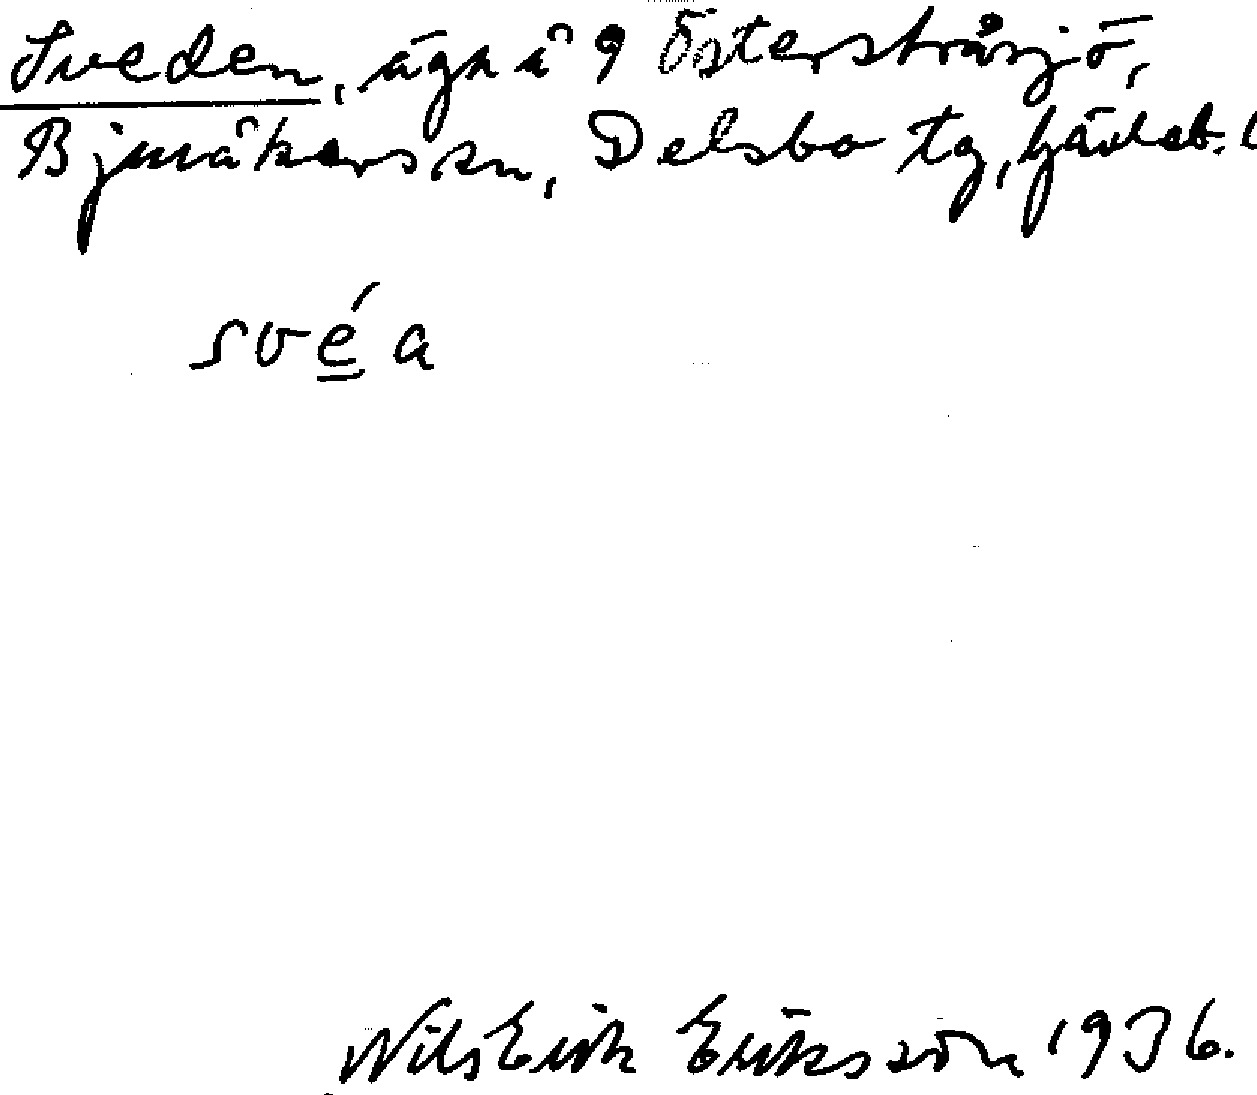 Sveden, ägn å 9 Österstråsjö,
Bjuråkers sn, Delsbo tg, Gävleb. l
svéa
Nils Erik Eriksson 1936.